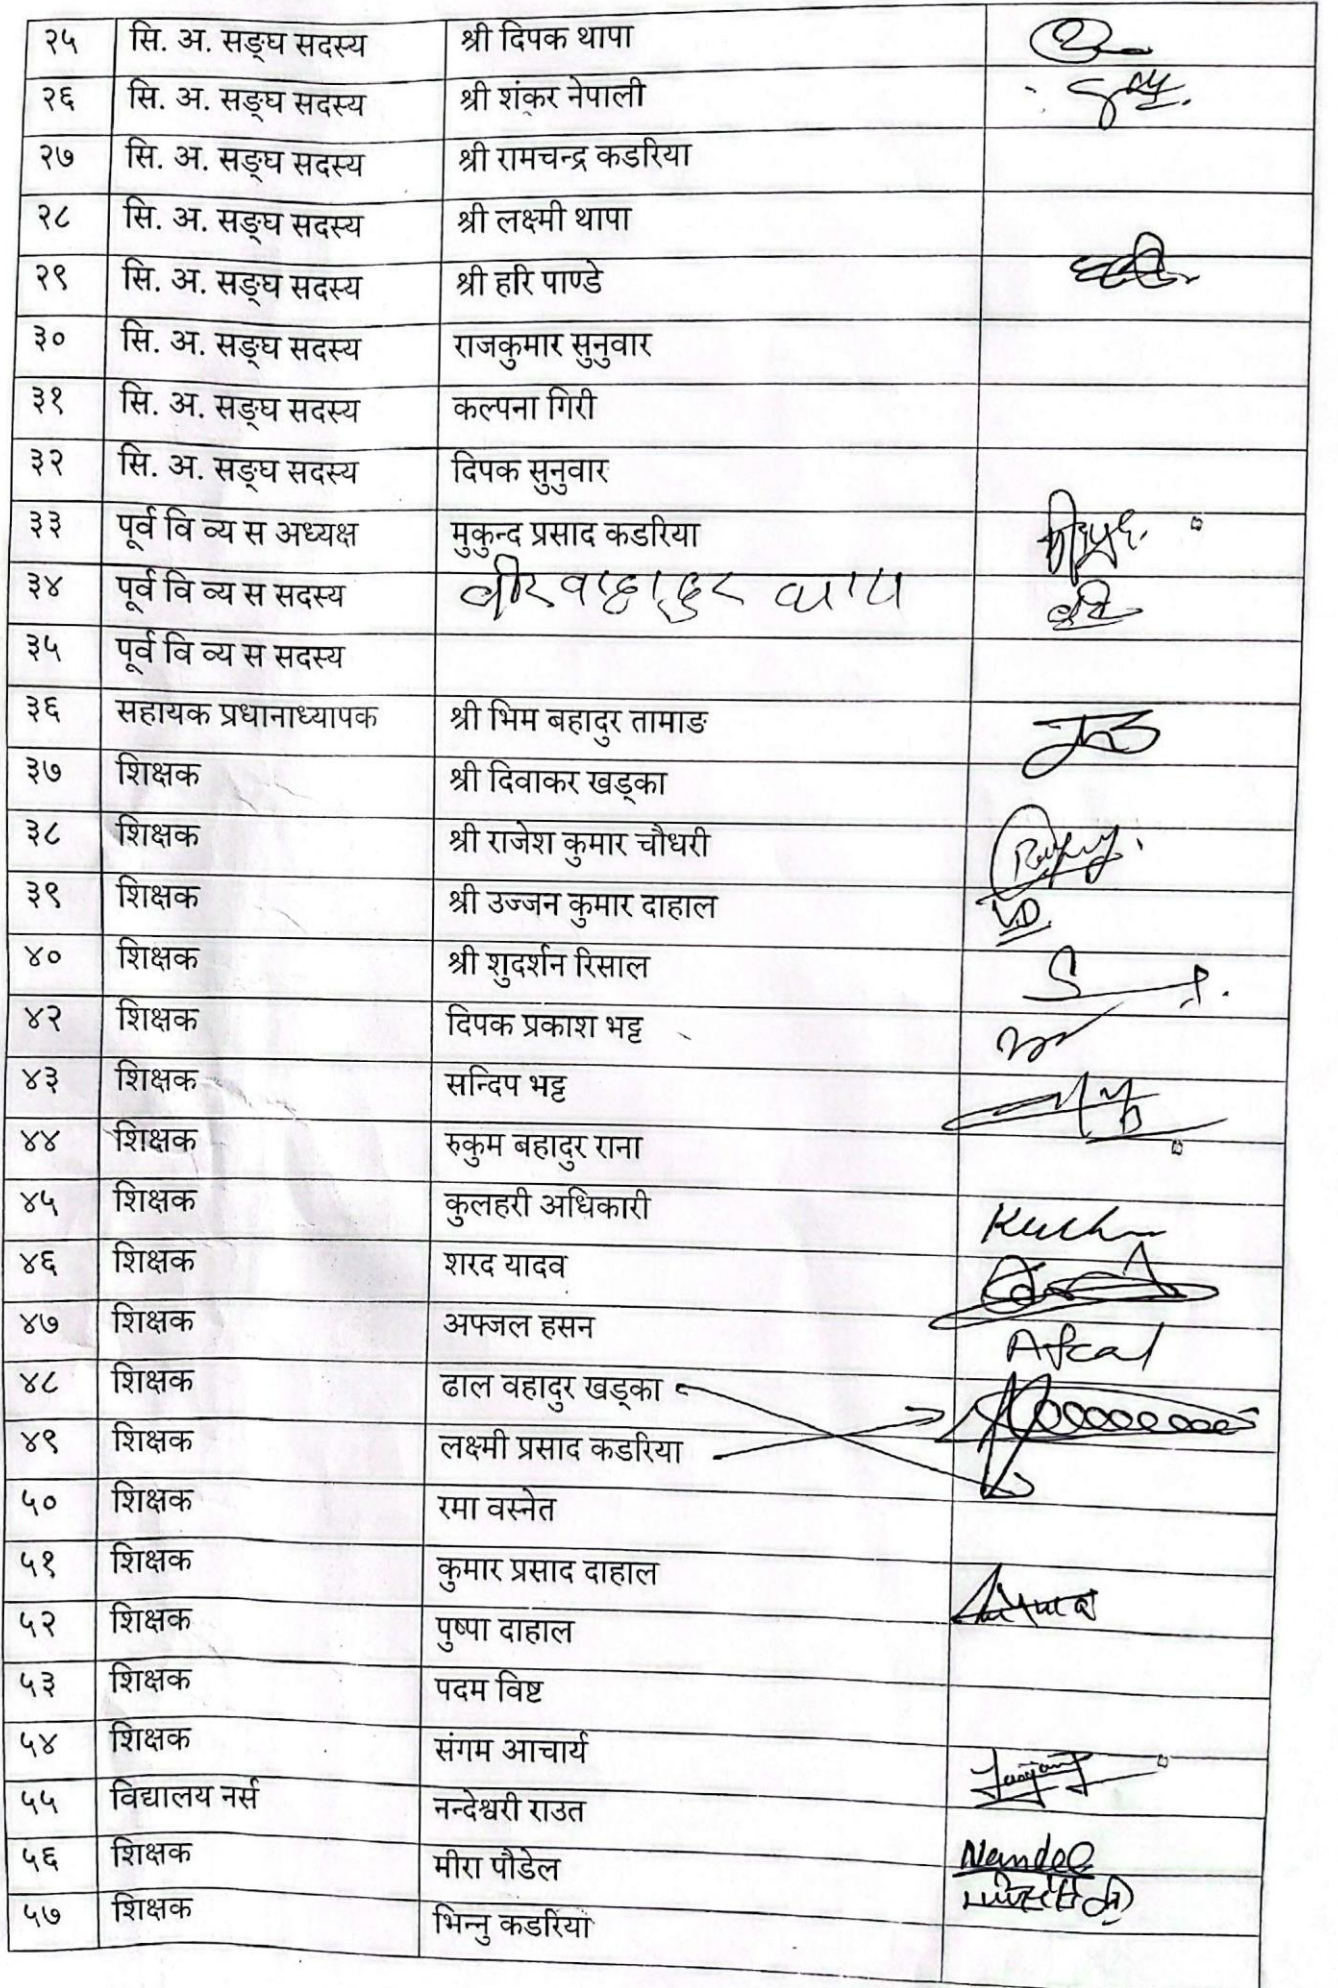 २५ सि. अ. सङ्घ सदस्य श्री दिपक थापा
२६ सि. अ. सङ्घ सदस्य श्री शंकर नेपाली
२७ सि. अ. सङ्घ सदस्य श्री रामचन्द्र कडरिया
२८ सि. अ. सङ्घ सदस्य श्री लक्ष्मी थापा
२९ सि. अ. सङ्घ सदस्य श्री हरि पाण्डे
३० सि. अ. सङ्घ सदस्य राजकुमार सुनुवार
३१ सि. अ. सङ्घ सदस्य कल्पना गिरी
३२ सि. अ. सङ्घ सदस्य दिपक सुनुवार
३३ पूर्व वि व्य स अध्यक्ष मुकुन्द प्रसाद कडरिया
३४ पूर्व वि व्य स सदस्य वीर वहादुर
३५ पूर्व वि व्य स सदस्य
३६ सहायक प्रधानाध्यापक श्री भिम बहादुर तामाङ
३७ शिक्षक श्री दिवाकर खड्का
३८ शिक्षक श्री राजेश कुमार चौधरी
३९ शिक्षक श्री उज्जन कुमार दाहाल
४० शिक्षक श्री शुदर्शन रिसाल
४२ शिक्षक दिपक प्रकाश भट्ट
४३ शिक्षक सन्दिप भट्ट
४४ शिक्षक रुकुम बहादुर राना
४५ शिक्षक कुलहरी अधिकारी
४६ शिक्षक शरद यादव
४७ शिक्षक अफ्जल हसन
४८ शिक्षक ढाल वहादुर खड्का
४९ शिक्षक लक्ष्मी प्रसाद कडरिया
५० शिक्षक रमा वस्नेत
५१ शिक्षक कुमार प्रसाद दाहाल
५२ शिक्षक पुष्पा दाहाल
५३ शिक्षक पदम विष्ट
५४ शिक्षक संगम आचार्य
५५ विद्यालय नर्स नन्देश्वरी राउत
५६ शिक्षक मीरा पौडेल
५७ शिक्षक भिन्नु कडरिया